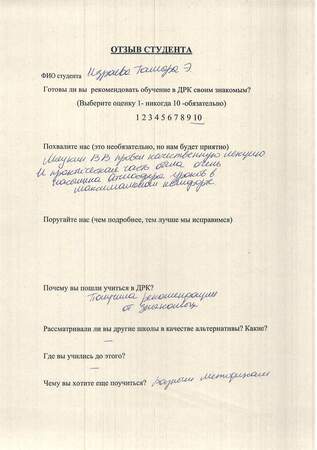 ОТЗЫВ СТУДЕНТА
ФИО студента Тамара Э
Готовы ли вы рекомендовать обучение в ДРК своим знакомым?
(Выберите оценку 1- никогда 10 -обязательно)
1 2 3 4 5 6 7 8 9 10
Похвалите нас (это необязательно, но нам будет приятно)
В.В. провел качественную лекцию
И практическая часть была очень
насыщена Атмосфера уроков в
максимальном комфорте
Поругайте нас (чем подробнее, тем лучше мы исправимся)
Почему вы пошли учиться в ДРК?
Получила рекомендации
от знакомых
Рассматривали ли вы другие школы в качестве альтернативы? Какие?
–
Где вы учились до этого?
–
Чему вы хотите еще поучиться? разным методикам